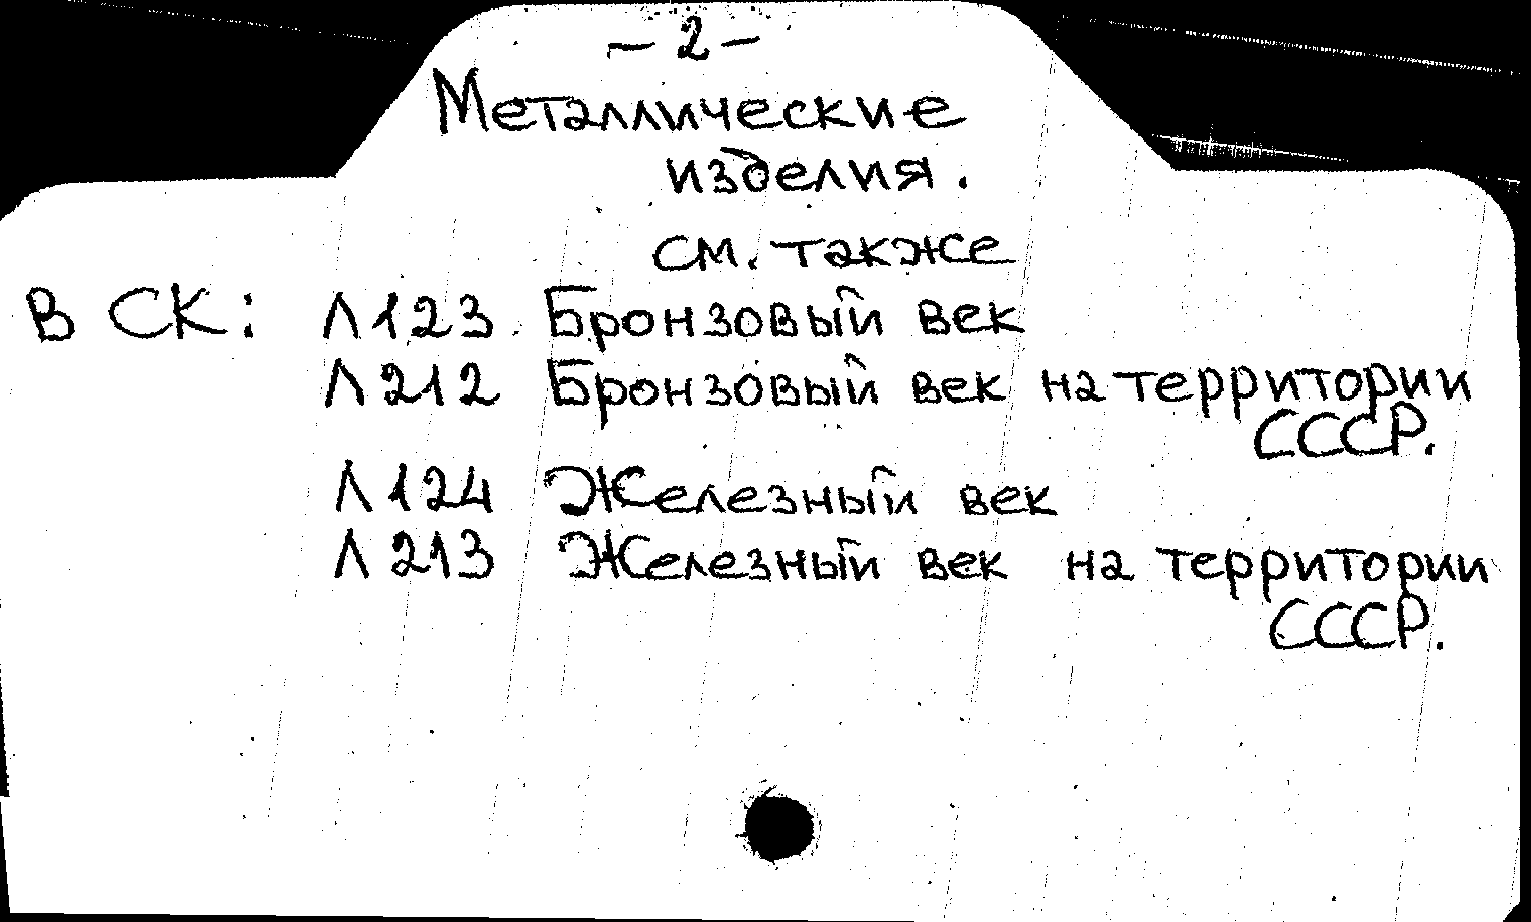 – 2 –
Металлические
изделия.
см. также
В СК: Л123 Бронзовый век
Л212 Бронзовый век на территории
СССР.
Л124 Железный век
Л213 Железный век на территории
СССР.